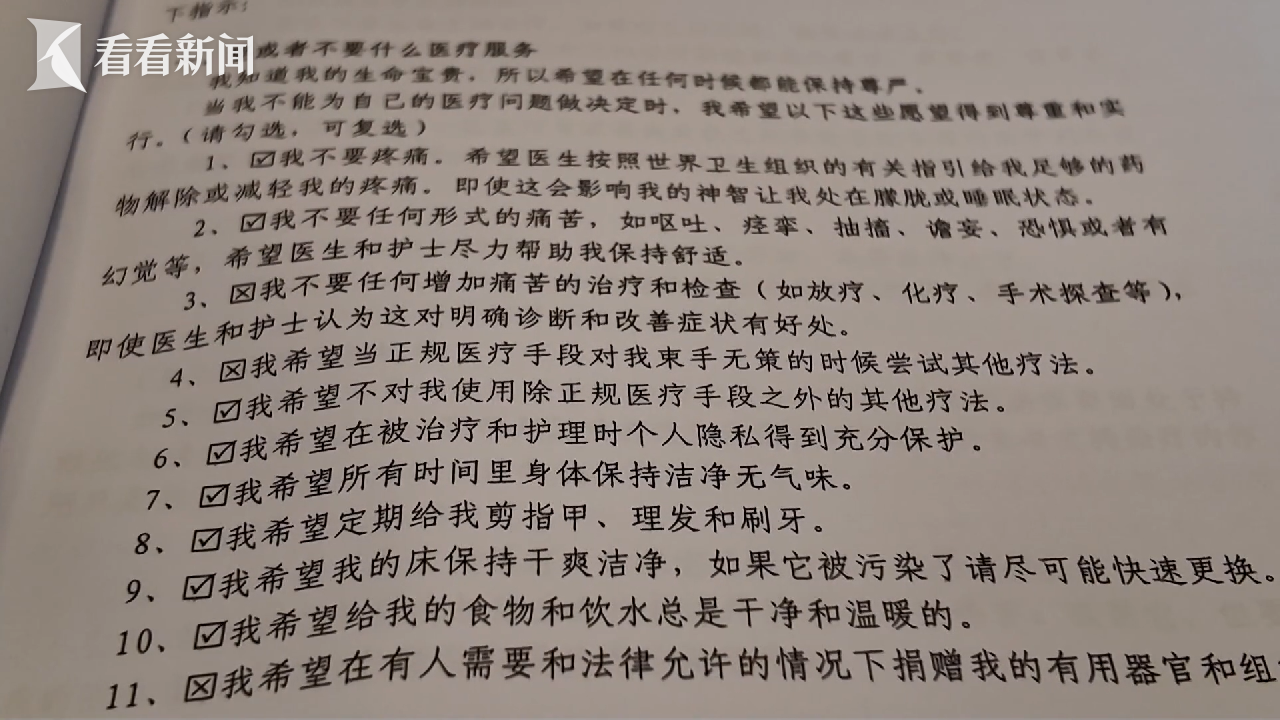 下指示：
看看新闻
或者不要什么医疗服务
我知道我的生命宝贵，所以希望在任何时候都能保持尊严。
当我不能为自己的医疗问题做决定时，我希望以下这些愿望得到尊重和实
行。（请勾选，可复选）
1、☑我不要疼痛。希望医生按照世界卫生组织的有关指引给我足够的药
物解除或减轻我的疼痛。即使这会影响我的神智让我处在朦胧或睡眠状态。
2、☑我不要任何形式的痛苦，如呕吐、痉挛、抽搐、谵妄、恐惧或者有
幻觉等，希望医生和护士尽力帮助我保持舒适。
3、☒我不要任何增加痛苦的治疗和检查（如放疗、化疗、手术探查等），
即使医生和护士认为这对明确诊断和改善症状有好处。
4、☒我希望当正规医疗手段对我束手无策的时候尝试其他疗法。
5、☑我希望不对我使用除正规医疗手段之外的其他疗法。
6、☑我希望在被治疗和护理时个人隐私得到充分保护。
7、☑我希望所有时间里身体保持洁净无气味。
8、☑我希望定期给我剪指甲、理发和刷牙。
9、☑我希望我的床保持干爽洁净，如果它被污染了请尽可能快速更换。
10、☑我希望给我的食物和饮水总是干净和温暖的。
11、☒我希望在有人需要和法律允许的情况下捐赠我的有用器官和组